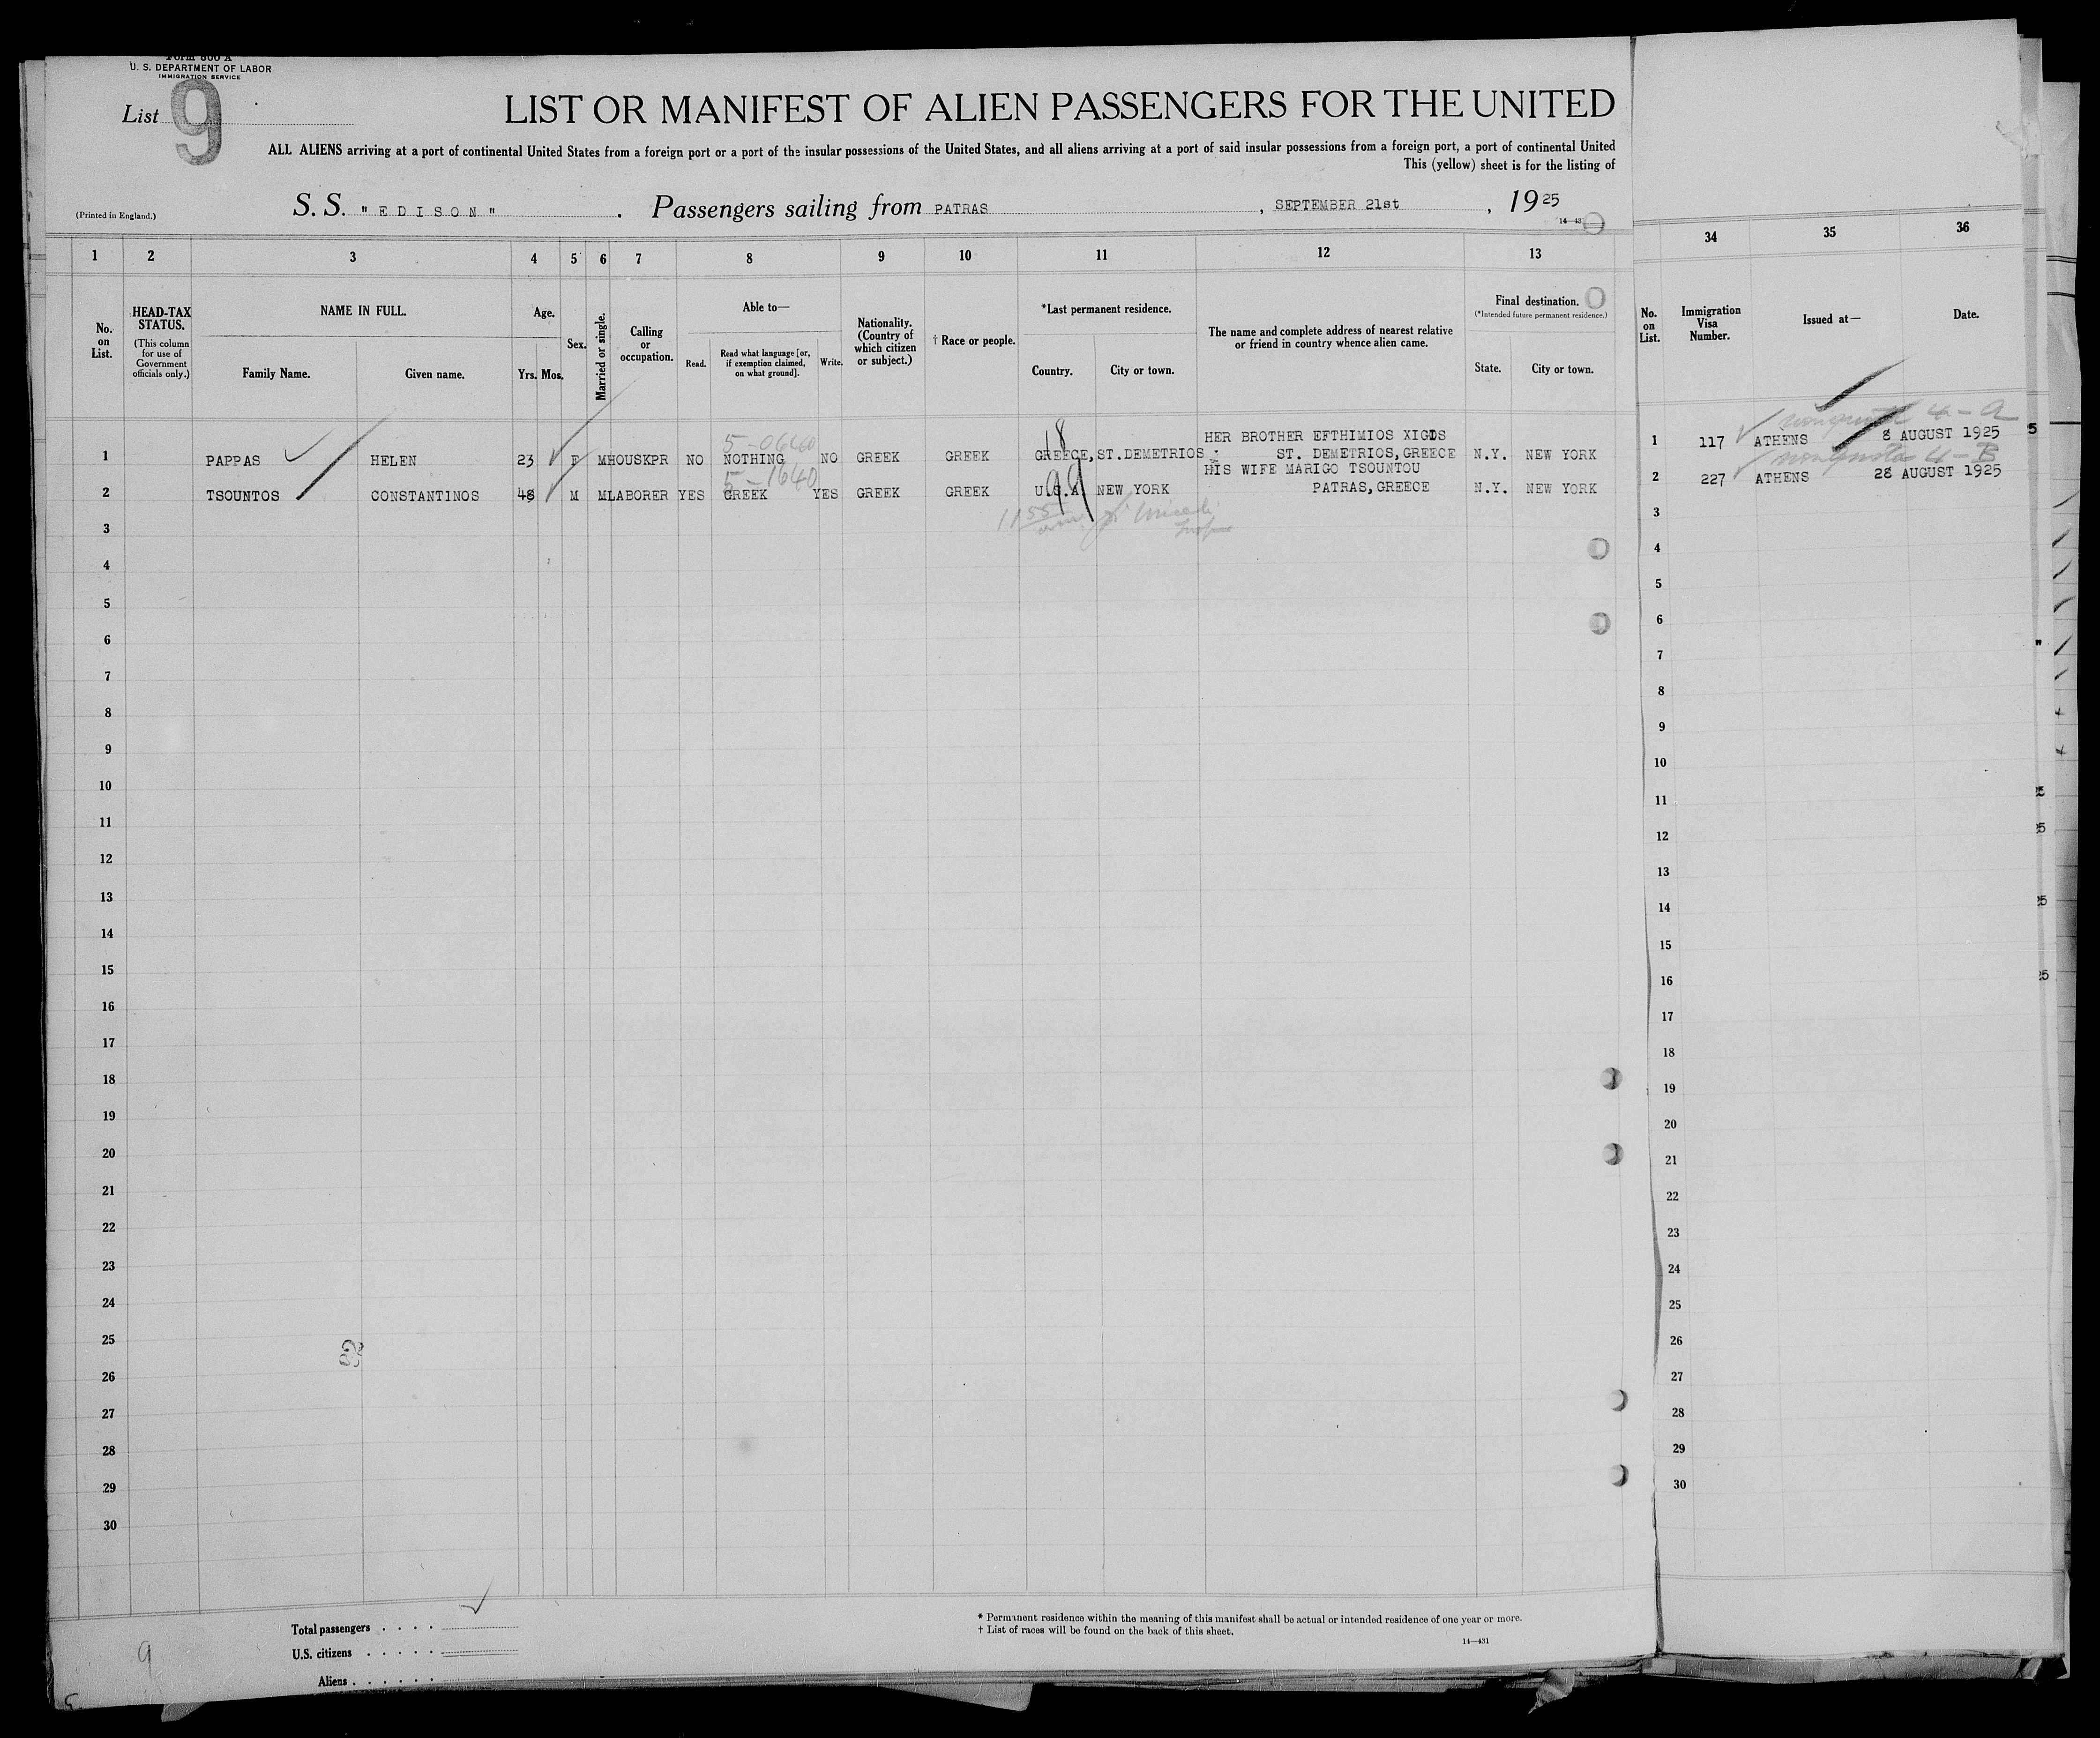 Form 500 A
U. S. DEPARTMENT OF LABOR
IMMIGRATION SERVICE
List 9
LIST OR MANIFEST OF ALIEN PASSENGERS FOR THE UNITED
ALL ALIENS arriving at a port of continental United States from a foreign port or a port of the insular possessions of the United States, and all aliens arriving at a port of said insular possessions from a foreign port, a port of continental United
This (yellow) sheet is for the listing of
(Printed in England.)
S. S. "EDISON" . Passengers sailing from PATRAS , SEPTEMBER 21st , 1925
1 2 3 4 5 6 7 8 9 10 11 12 13 34 35 36
No. on List.
HEAD-TAX STATUS.
(This column for use of Government officials only.)
NAME IN FULL.
Family Name. Given name.
Age.
Yrs. Mos.
Sex.
Married or single.
Calling or occupation.
Able to—
Read.
Read what language [or, if exemption claimed, on what ground].
Write.
Nationality. (Country of which citizen or subject.)
† Race or people.
*Last permanent residence.
Country. City or town.
The name and complete address of nearest relative or friend in country whence alien came.
Final destination.
(*Intended future permanent residence.)
State. City or town.
No. on List.
Immigration Visa Number.
Issued at—
Date.
5-0640 18 HER BROTHER EFTHIMIOS XIGDS 4-a
1 PAPPAS HELEN 23 F M HOUSKPR NO NOTHING NO GREEK GREEK GREECE, ST.DEMETRIOS : ST. DEMETRIOS, GREECE N.Y. NEW YORK 1 117 ATHENS 8 AUGUST 1925
5-1640 99 HIS WIFE MARIGO TSOUNTOU 4-B
2 TSOUNTOS CONSTANTINOS 48 M M LABORER YES GREEK YES GREEK GREEK U.S.A. NEW YORK PATRAS, GREECE N.Y. NEW YORK 2 227 ATHENS 28 AUGUST 1925
3 3
4 4
5 5
6 6
7 7
8 8
9 9
10 10
11 11
12 12
13 13
14 14
15 15
16 16
17 17
18 18
19 19
20 20
21 21
22 22
23 23
24 24
25 25
26 26
27 27
28 28
29 29
30 30
Total passengers . . . .
U.S. citizens . . . . .
Aliens . . . . . .
9
* Permanent residence within the meaning of this manifest shall be actual or intended residence of one year or more.
† List of races will be found on the back of this sheet.
14—431